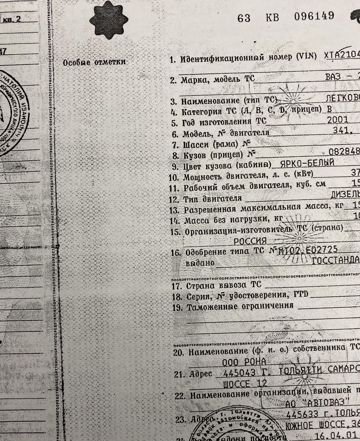 кв. 2
63 КВ 096149
Особые отметки
1. Идентификационный номер (VIN) XTA2104
2. Марка, модель ТС ВАЗ -
3. Наименование (тип ТС) ЛЕГКОВО
4. Категория ТС (А, В, С, D, прицеп) В
5. Год изготовления ТС 2001
6. Модель, № двигателя 341.
7. Шасси (рама) №
8. Кузов (прицеп) № 082848
9. Цвет кузова (кабины) ЯРКО-БЕЛЫЙ
10. Мощность двигателя, л. с. (кВт) 37
11. Рабочий объем двигателя, куб. см 15
12. Тип двигателя ДИЗЕЛЬ
13. Разрешенная максимальная масса, кг
14. Масса без нагрузки, кг
15. Организация-изготовитель ТС (страна)
РОССИЯ
16. Одобрение типа ТС № МТ02.Е02725
выдано ГОССТАНДА
17. Страна вывоза ТС
18. Серия, № удостоверения, PTD
19. Таможенные ограничения
20. Наименование (ф. и. о.) собственника ТС
ООО РОНА
21. Адрес 445043 Г. ТОЛЬЯТТИ САМАРС
ШОССЕ 12
22. Наименование организации, выдавшей п
АО "АВТОВАЗ"
23. Адрес 445633 Г.ТОЛЬ
ЮЖНОЕ ШОССЕ,36
24. Дата 16.04.01